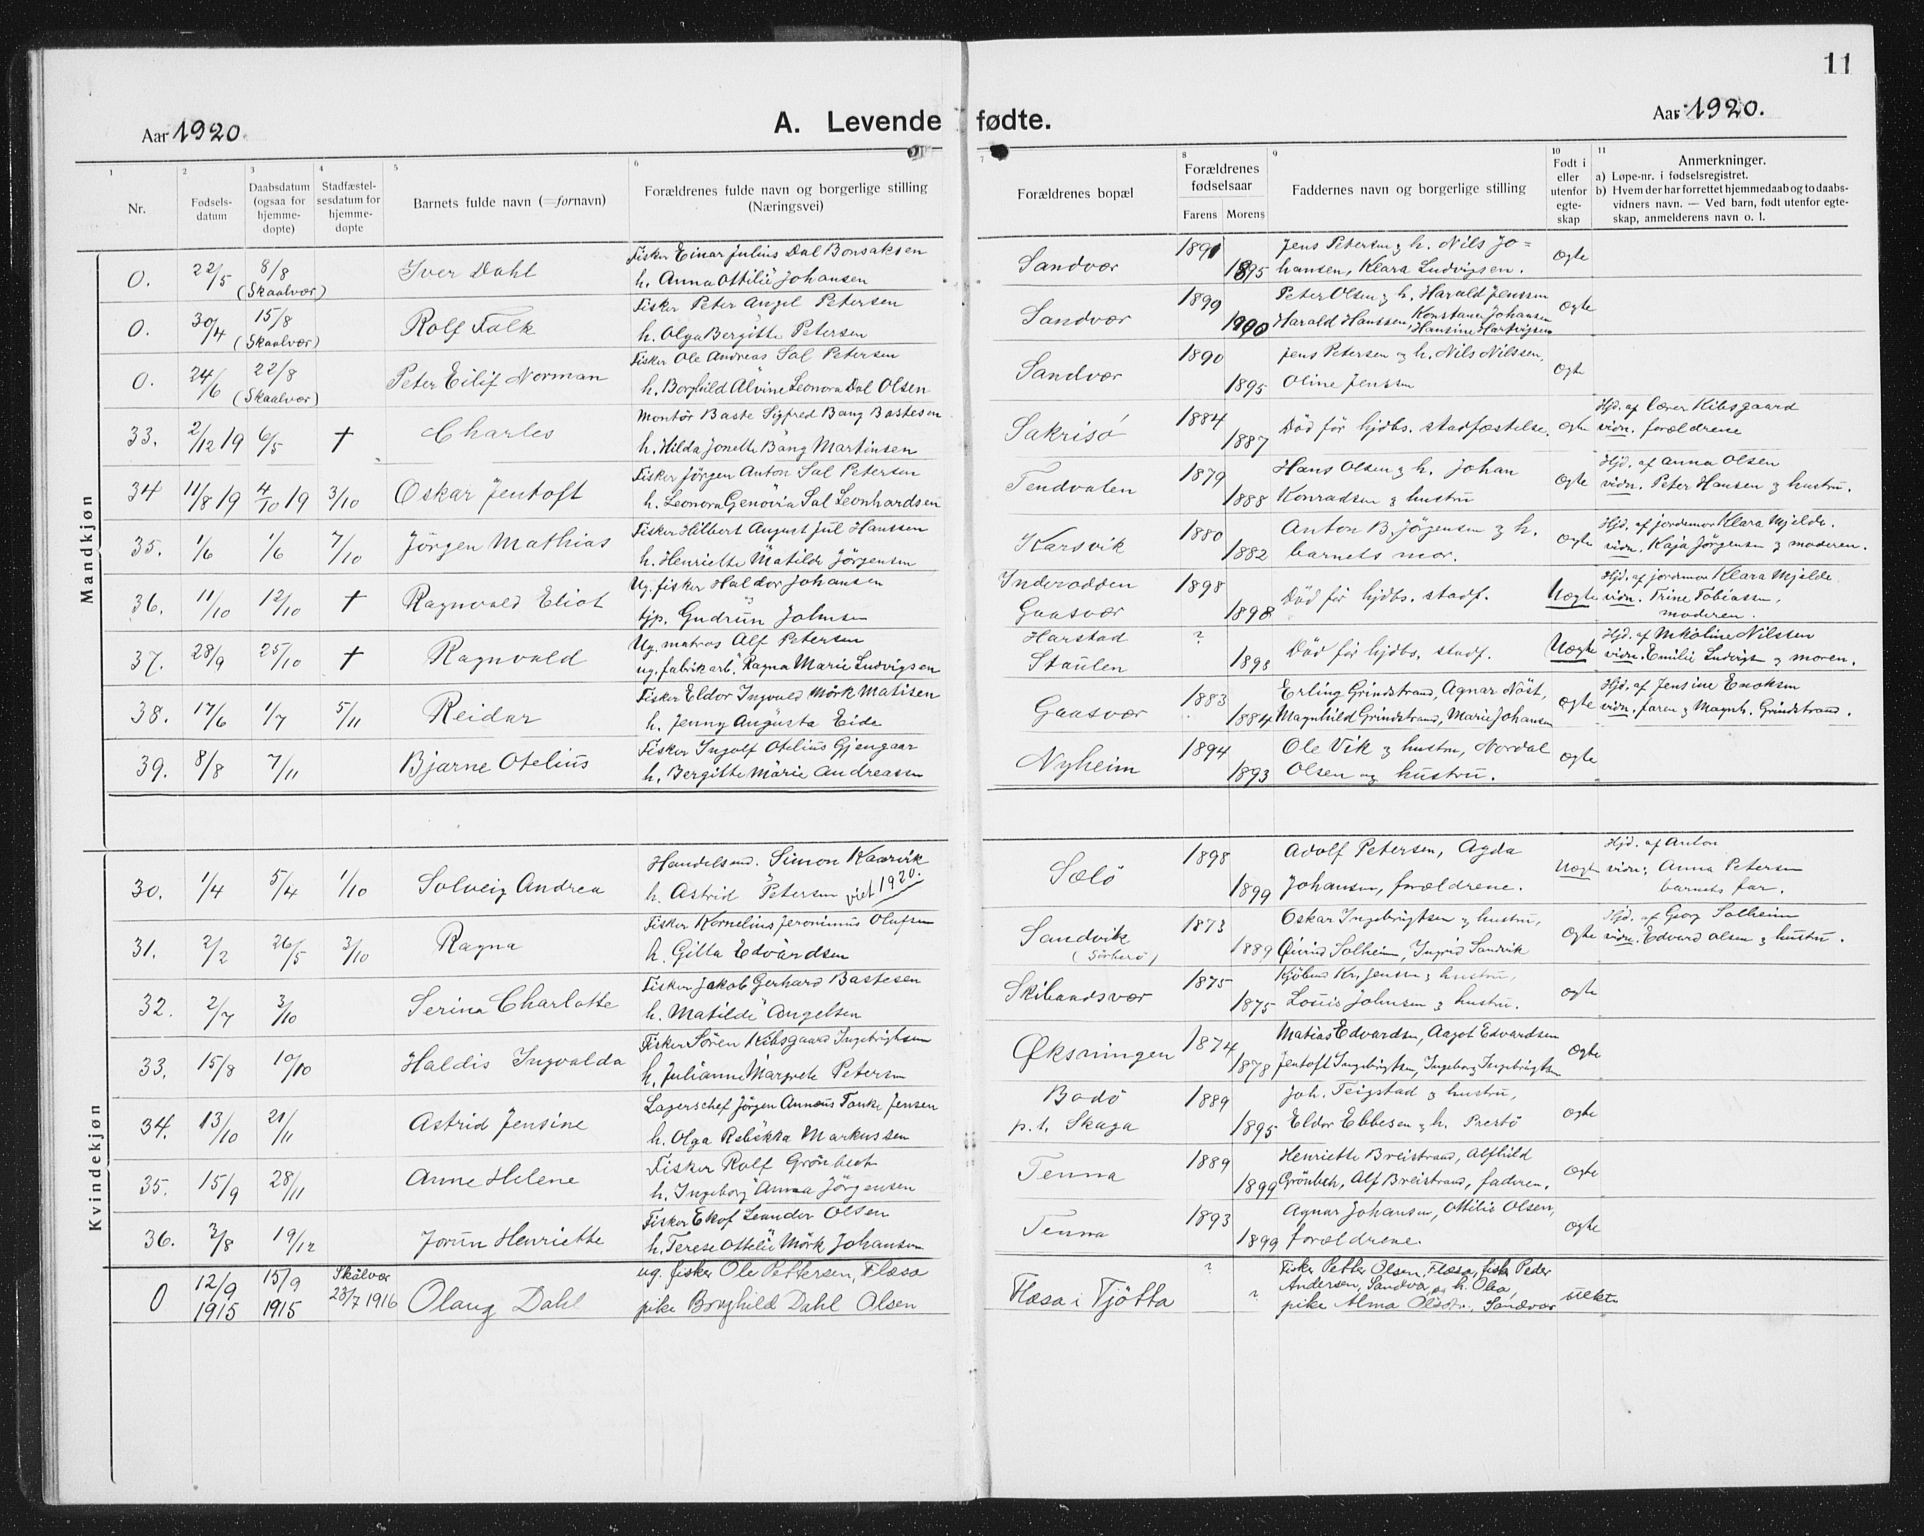 11
Aar 1920.
A. Levende fødte.
Aar 1920.
1 Nr.
2 Fødsels-datum
3 Daabsdatum (ogsaa for hjemme-døpte)
4 Stadfæstel-sesdatum for hjemme-døpte
5 Barnets fulde navn (=fornavn)
6 Forældrenes fulde navn og borgerlige stilling (Næringsvei)
7 Forældrenes bopæl
8 Forældrenes fødselsaar
Farens Morens
9 Faddernes navn og borgerlige stilling
10 Født i eller utenfor egte-skap
11 Anmerkninger.
a) Løpe-nr. i fødselsregistret.
b) Hvem der har forrettet hjemmedaab og to daabs-
vidners navn. — Ved barn, født utenfor egte-
skap, anmelderens navn o. l.
Mandkjøn
0. 22/5 8/8 (Skaalvær) Iver Dahl
Fisker Einar Julius Dal Bonsaksen
h. Anna Ottilie Johansen
Sandvær 1891 1895
Jens Petersen & h. Nils Jo=
hansen, Klara Ludvigsen. ægte
0. 30/4 15/8 (Skaalvær) Rolf Falk
Fisker Peter Angel Petersen
h. Olga Bergitte Petersen
Sandvær 1899 1900
Peter Olsen & h. Harald Jenssen
Harald Hanssen, Konstanse Johansen
Hansine Hartvigsen ægte
0. 24/6 22/8 (Skaalvær) Peter Eilif Norman
Fisker Ole Andreas Sal Petersen
h. Borghild Alvine Leonora Dal Olsen
Sandvær 1890 1895
Jens Petersen og h. Nils Nilssen,
Oline Jenssen ægte
33. 2/12 19 6/5 † Charles
Montör Baste Sigfred Bang Bastesen
h. Hilda Jonette Bang Martinsen
Sakrisö 1884 1887
Död för hjdbs. stadfæstelse. ægte
Hjd. af Lærer Kibsgaard
vidn. forældrene
34 11/8 19 4/10 19 3/10 Oskar Jentoft
Fisker Jörgen Anton Sal Petersen
h. Leonora Genovia Sal Leonhardsen
Tendvalen 1879 1888
Hans Olsen & h. Johan
Konradsen & hustru ægte
Hjd. af Anna Olsen
vidn. Peter Hansen & hustru.
35. 1/6 1/6 7/10 Jörgen Mathias
Fisker Hilbert August Jul Hanssen
h. Henriette Matilde Jörgensen
Karsvik 1880 1882
Anton B. Jörgensen & h.
barnets mor. ægte
Hjd. af jordemor Klara Mjelde.
vidn. Kaja Jörgensen & moderen.
36. 11/10 12/10 † Ragnvald Eliot
Ug. fisker Haldor Johansen
tjp. Gudrun Johnsen
Inderodden
Gaasvær 1898 1898
Död för hjdbs. stadf. Uægte
Hjd. af jordemor Klara Mjelde
vidn. Trine Tobiassen,
moderen.
37. 28/9 25/10 † Ragnvald
Ug. matros Alf Petersen
ug. fabrikarb. Ragna Marie Ludvigsen
Harstad
Staulen ? 1898
Död för hjdbs. stadf. Uægte
Hjd. af Nikoline Nilssen
vidn. Emilie Ludvigsen & moren.
38. 17/6 1/7 5/11 Reidar
Fisker Eldor Ingvald Mörk Matisen
h. Jenny Augusta Eide
Gaasvær 1883 1884
Erling Grindstrand, Agnar Nöst,
Magnhild Grindstrand, Marie Johansen ægte
Hjd. af Jensine Enoksen
vidn. faren & Magnh. Grindstrand.
39. 8/8 7/11 Bjarne Otelius
Fisker Ingolf Otelius Gjengaar
h. Bergitte Marie Andreassen
Nyheim 1894 1893
Ole Vik & hustru, Nordal
Olsen og hustru. ægte
Kvindekjøn
30. 1/4 5/4 1/10 Solveig Andrea
Handelsmd. Simon Kaarvik
h. Astrid Petersen viet 1920.
Sælö 1898 1899
Adolf Petersen, Agda
Johansen, forældrene. Uægt
Hjd. af Anton
vidn. Anna Petersen
barnets far.
31. 2/2 26/5 3/10 Ragna
Fisker Kornelius Jeronimus Olufsen
h. Gitta Edvardsen
Sandvik 1873 1889
Oskar Ingebrigtsen & hustru,
Øivind Solheim, Ingrid Sandvik ægte
Hjd. af Georg Solheim
vidn. Edvard Olsen & hustru.
32. 2/7 3/10 Serina Charlotte
Fisker Jakob Gerhard Bastesen
h. Matilde Angelsen
Skibaadsvær 1875 1875
Kjöbmd Kr. Jensen & hustru,
Louis Johnsen & hustru. ægte
33. 15/8 10/10 Haldis Ingvalda
Fisker Sören Kibsgaard Ingebrigtsen
h. Julianne Margrete Petersen
Øksningen 1874 1878
Matias Edvardsen, Aagot Edvardsen
Jentoft Ingebrigtsen, Ingeborg Ingebrigtsen ægte
34. 13/10 21/11 Astrid Jensine
Lagerschef Jörgen Annæus Tanke Jensen
h. Olga Rebekka Markussen
Bodö
p.t. Skaga 1889 1895
Joh. Teigstad & hustru,
Eldor Ebbesen & h. Prestö ægte
35. 15/9 28/11 Anne Helene
Fisker Rolf Grönbech
h. Ingeborg Anna Jörgensen
Tenna 1889 1899
Henriette Breistrand, Alfhild
Grönbech, Alf Breistrand, faderen. ægte
36. 3/8 19/12 Jorun Henriette
Fisker Ekof Leander Olsen
h. Terese Ottelie Mörk Johansen
Tenna 1893 1899
Agnar Johansen, Ottilie Olsen,
forældrene. ægte
0 12/9 1915 15/9 1915 Skålvær 23/7 1916 Olaug Dahl
ug. fisker Ole Pettersen, Flæsa
pike Borghild Dahl Olsen
Flæsa i Tjötta ? ?
Fisker Petter Olsen, Flæsa, fisker Peder
Andersen, Sandvær og h. Olea
pike Alma Olsen, Sandvær uekte